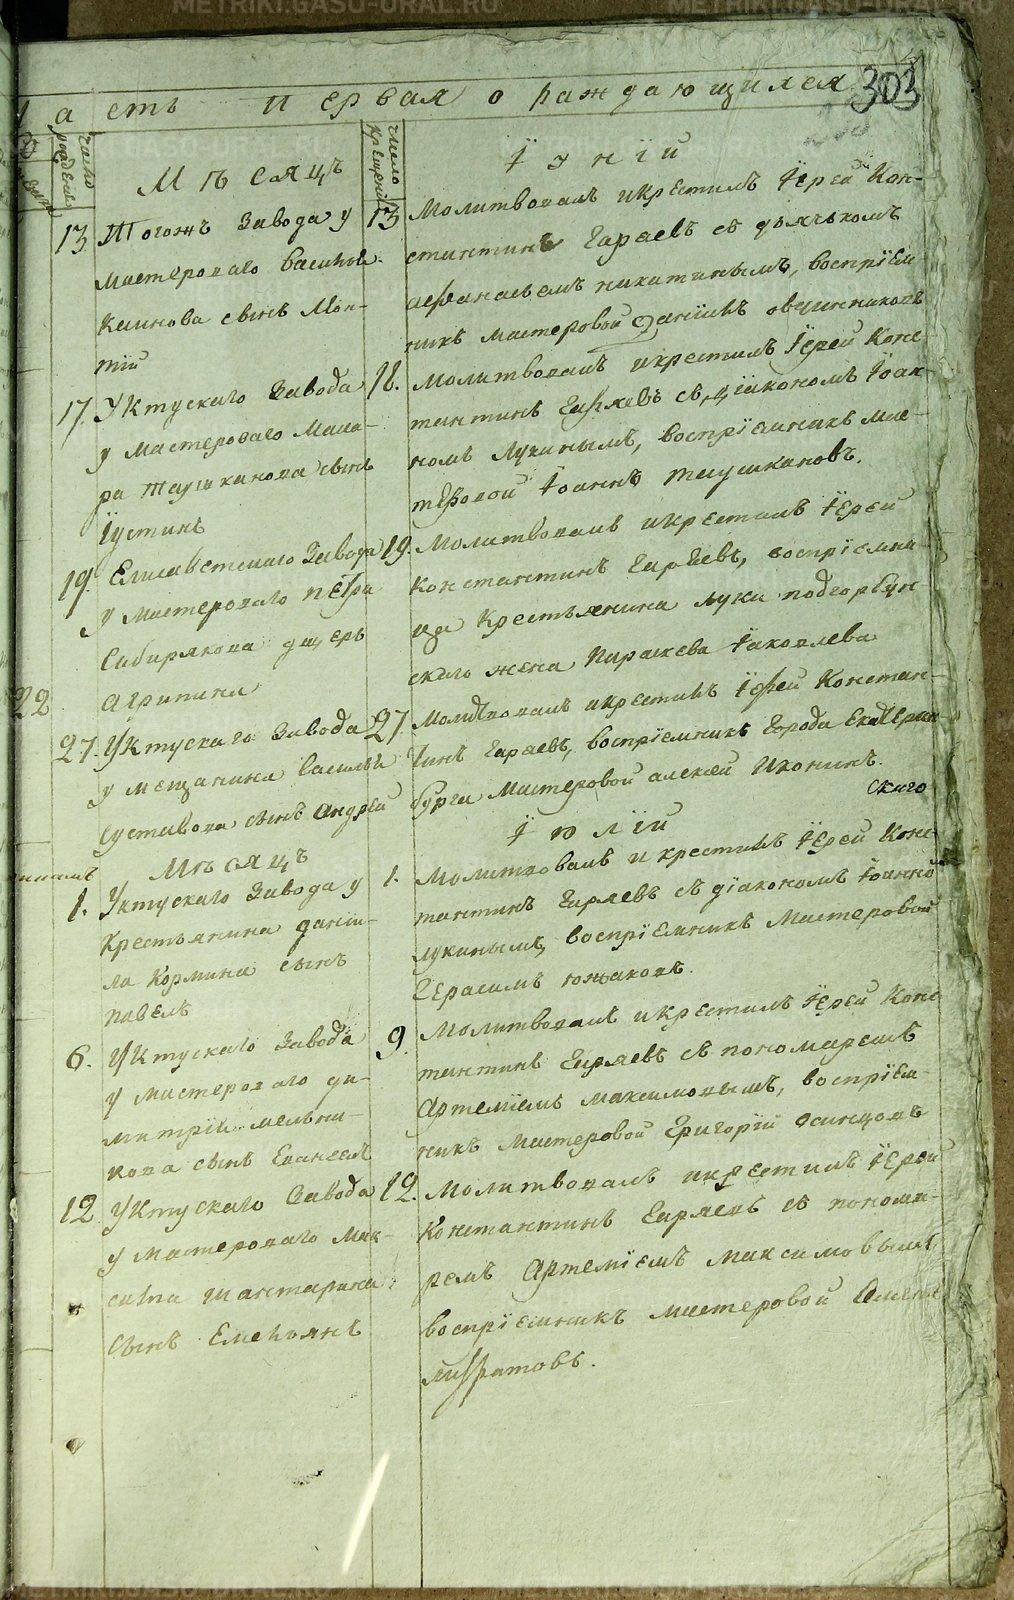 METRIKI.GASO-URAL.RU METRIKI.GASO-URAL.RU
часть первая о раждающихся 303
число рождения
число крещения
Мѣсяцъ Їюнїй
13 Тогожъ завода у
мастероваго Василья
Каинова сынъ Мон-
тїй
13 Молитвовалъ и крестилъ Їерей Кон-
стинтинъ Гаряевъ съ дьячькомъ
Афанасьемъ Никитинымъ, воспрїем
никъ мастеровой Данїилъ Овчинниковъ
17. Уктускаго завода
у мастероваго Мака-
ра Таушканова сынъ
Їустинъ
18. Молитвовалъ и крестилъ Їерей Конс
тантинъ Гаряевъ съ дїякономъ Їоан
номъ Лукинымъ, воспрїемникъ мас-
теровой Їоаннъ Таушкановъ.
19. Елисаветскаго завода
у мастероваго Петра
Сибирякова дщерь
Агрипина
19. Молитвовалъ и крестилъ Їерей
Константинъ Гаряевъ, воспрїемни
ца крестьянина Луки Подгорбун
скаго жена Параскева Їаковлева
22
27. Уктускаго завода
у мещанина Василья
Густавова сынъ Андрей
27. Молитвовалъ и крестилъ Їерей Констан-
тинъ Гаряевъ, воспрїемникъ города Екатерин
бурга мастеровой Алексей Иконинъ.
скаго
Мѣсяцъ Їюлїй
1. Уктускаго завода у
крестьянина Данїи-
ла Кормина сынъ
Павелъ
1. Молитвовалъ и крестилъ Їерей Конс
тантинъ Гаряевъ съ дїякономъ Їоанно
Лукинымъ, воспрїемникъ мастеровой
Герасимъ Южаковъ.
6. Уктускаго завода
у мастероваго Ди-
митрїя Мельни-
кова сынъ
9. Молитвовалъ и крестилъ Їерей Конс
тантинъ Гаряевъ съ пономаремъ
Артемїемъ Максимовымъ, воспрїем-
никъ мастеровой Григорїй Осинцовъ
12 Уктускаго Завода
у мастероваго Мак-
сима Шантарина
сынъ Емельянъ
12. Молитвовалъ и крестилъ Їерей
Константинъ Гаряевъ съ понома-
ремъ Артемїемъ Максимовымъ
воспрїемникъ мастеровой Семенъ
METRIKI.GASO-URAL.RU METRIKI.GASO-URAL.RU